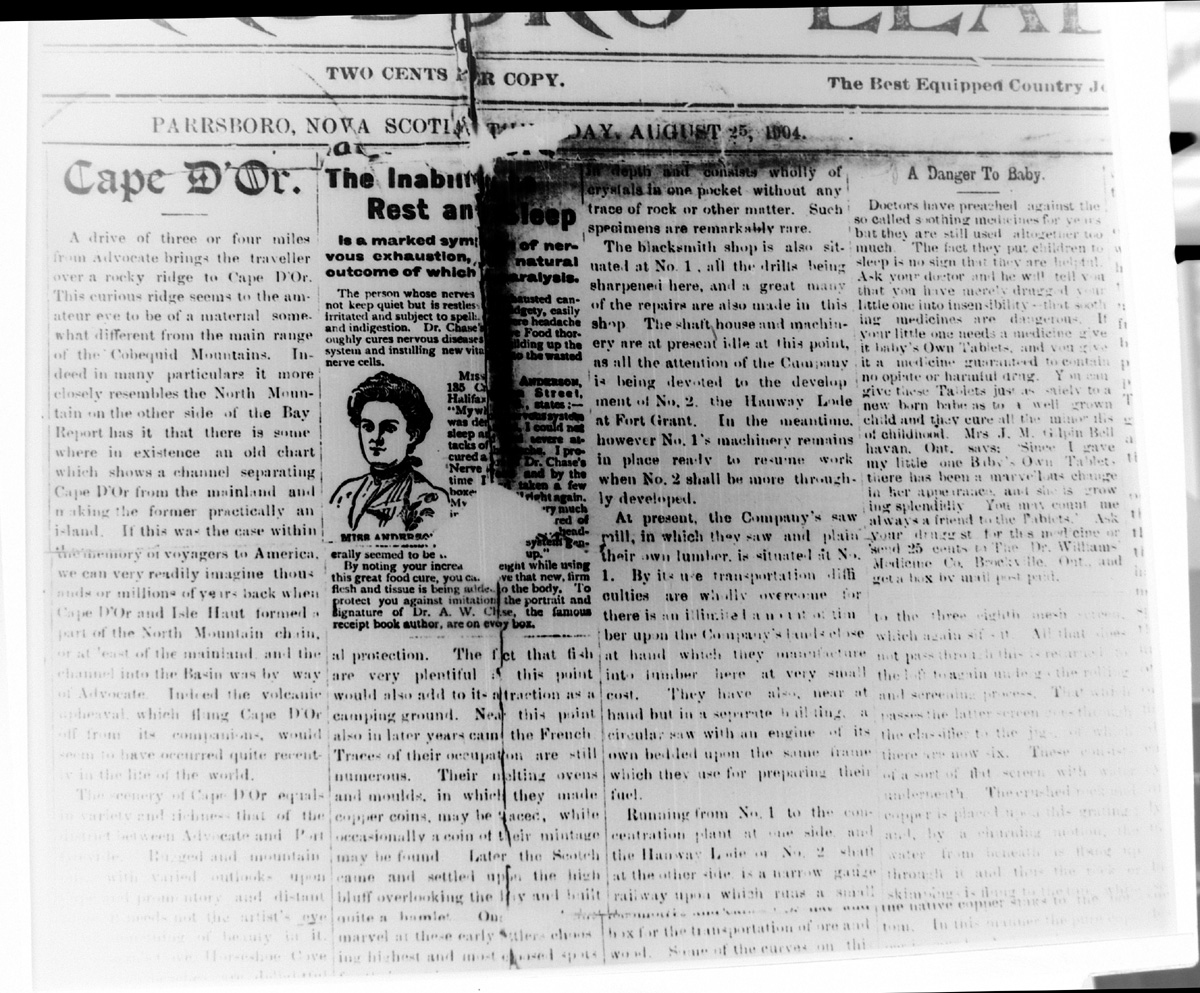 TWO CENTS PER COPY.
The Best Equipped Country
PARRSBORO, NOVA SCOTIA, DAY, AUGUST 25, 1904.
Cape D'Or.
A drive of three or four miles
from Advocate brings the traveller
over a rocky ridge to Cape D'Or.
This curious ridge seems to the am-
ateur eye to be of a material some-
what different from the main range
of the Cobequid Mountains. In-
deed in many particulars it more
closely resembles the North Moun-
tain on the other side of the Bay
Report has it that there is some
where in existence an old chart
which shows a channel separating
Cape D'Or from the mainland and
making the former practically an
island. If this was the case within
the memory of voyagers to America,
we can very readily imagine thous
ands or millions of years back when
Cape D'Or and Isle Haut formed a
part of the North Mountain chain,
or at least of the mainland, and the
channel into the Basin was by way
of Advocate. Indeed the volcanic
upheaval which flung Cape D'Or
off from its companions, would
seem to have occurred quite recent-
ly in the life of the world.
The scenery of Cape D'Or equals
in variety and richness that of the
between Advocate and Port
Rugged and mountain
with varied outlooks upon
promontory and distant
needs not the artist's eye
of beauty in it.
Horseshoe Cove
The Inability
Rest an Sleep
Is a marked sym of ner-
vous exhaustion, natural
outcome of which aralysis.
The person whose nerves hausted can-
not keep quiet but is restless dgety, easily
irritated and subject to spells ere headache
and indigestion. Dr. Chase's e Food thor-
oughly cures nervous diseases ilding up the
system and instilling new vita to the wasted
nerve cells.
MISS ANDERSON,
185 Street,
Halifax states:—
"My wh vous system
was de I could not
sleep a severe at-
tacks of I pro-
cured a Dr. Chase's
Nerve and by the
time I taken a few
boxes right again.
My ry much
red of
head-
system gen-
MISS ANDERSON
erally seemed to be up."
By noting your increa eight while using
this great food cure, you ca ve that new, firm
flesh and tissue is being added to the body. To
protect you against imitation the portrait and
signature of Dr. A. W. Chase, the famous
receipt book author, are on every box.
al protection. The fact that fish
are very plentiful this point
would also add to its attraction as a
camping ground. Near this point
also in later years came the French.
Traces of their occupation are still
numerous. Their melting ovens
and moulds, in which they made
copper coins, may be traced, while
occasionally a coin of their mintage
may be found Later the Scotch
came and settled upon the high
bluff overlooking the bay and built
quite a hamlet. One
marvel at these early settlers choos
ing highest and most exposed spots
in depth and consists wholly of
crystals in one pocket without any
trace of rock or other matter. Such
specimens are remarkably rare.
The blacksmith shop is also sit-
uated at No. 1, all the drills being
sharpened here, and a great many
of the repairs are also made in this
shop The shaft house and machin-
ery are at present idle at this point,
as all the attention of the Company
is being devoted to the develop
ment of No. 2, the Hanway Lode
at Fort Grant. In the meantime,
however No. 1's machinery remains
in place ready to resume work
when No. 2 shall be more through-
ly developed.
At present, the Company's saw
mill, in which they saw and plain
their own lumber, is situated at No.
1. By its use transportation diffi
culties are wholly overcome for
there is an illimited amount of tim
ber upon the Company's lands close
at hand which they manufacture
into lumber here at very small
cost. They have also, near at
hand but in a separate building, a
circular saw with an engine of its
own bedded upon the same frame
which they use for preparing their
fuel.
Running from No. 1 to the con
centration plant at one side, and
the Hanway Lode or No. 2 shaft
at the other side, is a narrow gauge
railway upon which runs a small
box for the transportation of ore and
wood. Some of the curves on this
A Danger To Baby.
Doctors have preached against the
so called soothing medicines for years
but they are still used altogether too
much. The fact they put children to
sleep is no sign that they are helpful.
Ask your doctor and he will tell you
that you have merely drugged your
little one into insensibility—that sooth
ing medicines are dangerous. If
your little one needs a medicine give
it baby's Own Tablets, and you give
it a medicine guaranteed to contain
no opiate or harmful drug. You can
give these Tablets just as safely to a
new born babe as to a well grown
child and they cure all the minor ills
of childhood. Mrs J. M. Gilpin Bell
havan, Ont. says: "Since I gave
my little one Baby's Own Tablets
there has been a marvellous change
in her appearance, and she is grow
ing splendidly You may count me
always a friend to the Tablets." Ask
your druggist for this medicine or
send 25 cents to The Dr. Williams'
Medicine Co. Brockville, Ont., and
get a box by mail post paid.
to the three eighth mesh screen,
which again sifts it. All that does
not pass through this is returned to
the left to again undergo the rolling
and screening process. That which
passes the latter screen goes through
the classifier to the jigs, of which
there are now six. These consist
of a sort of flat screen with water
underneath. The crushed rock and
copper is placed upon this grating
and, by a churning motion, the
water from beneath is flung up
through it and thus the rock or
skimmings is flung to the top, while
the native copper sinks to the bot
tom. In this manner the pure